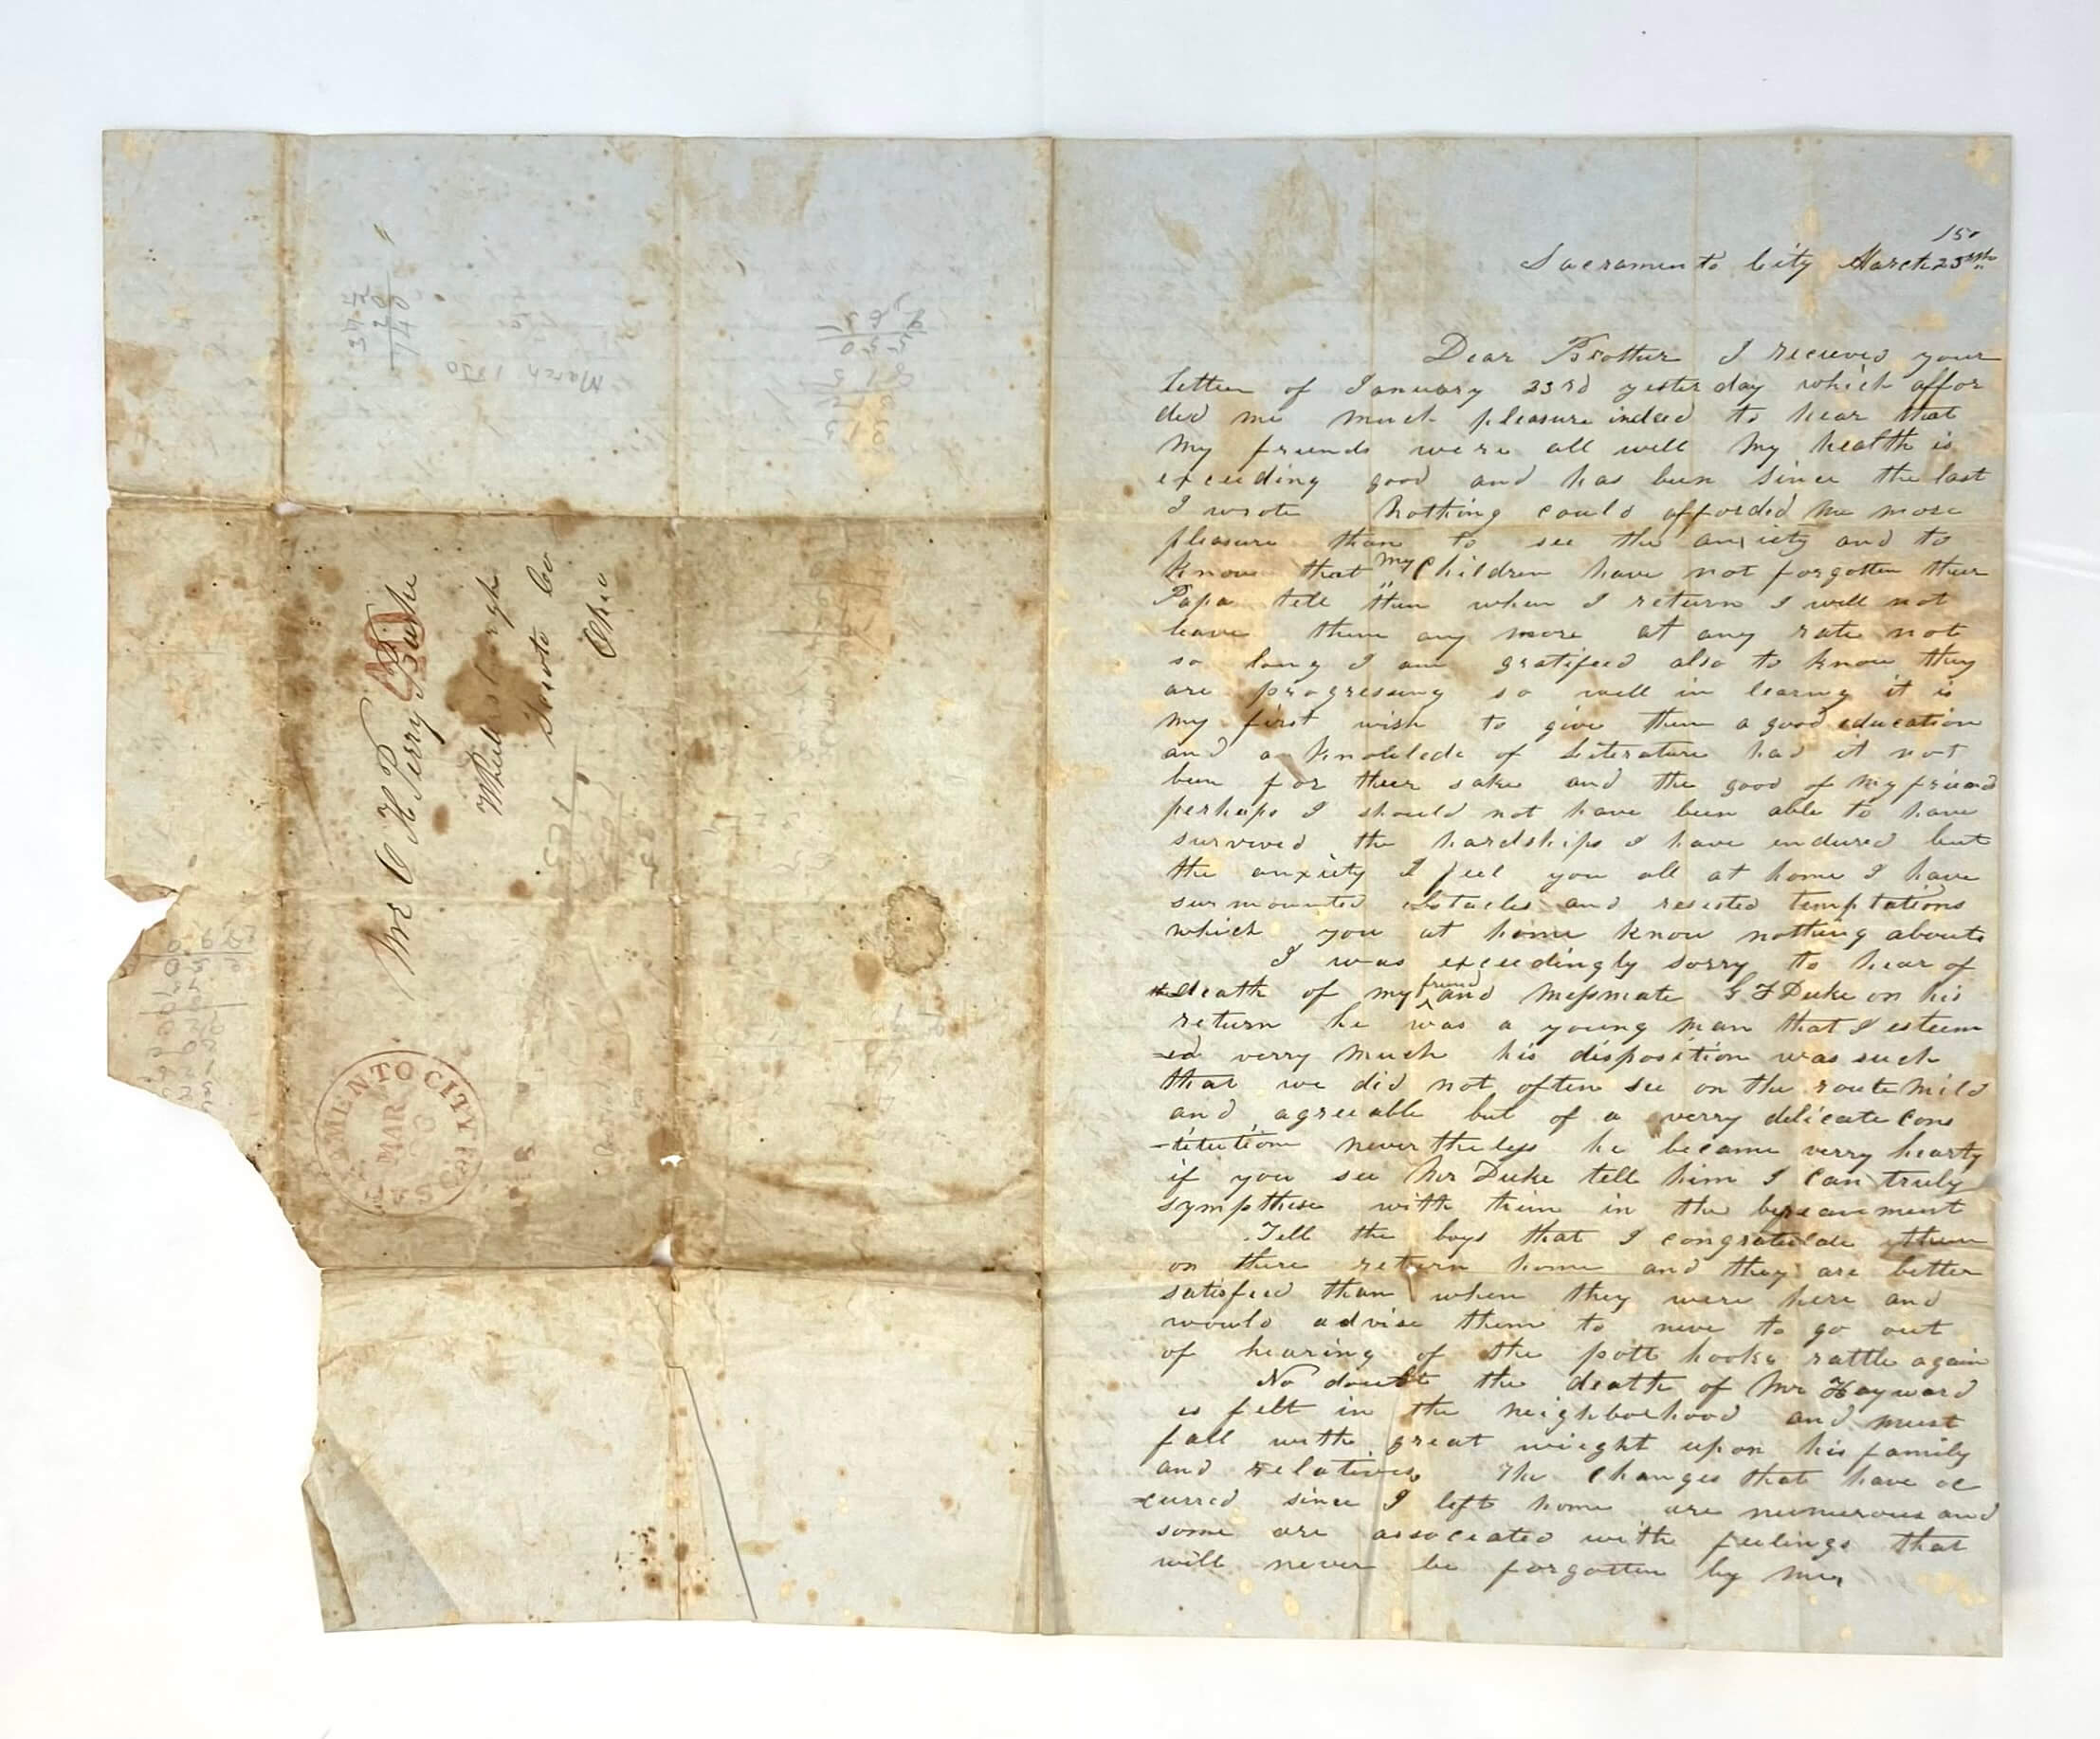 Mr O H Perry Duke
Wheelersburgh
Scioto Co
Ohio
40
SACRAMENTO CITY
MAR
March 1850
Sacramento City March 25th
Dear Brother I recieved your
letter of January 23rd yesterday which affor
ded me much pleasure indeed to hear that
my friends were all well My health is
exceeding good and has been since the last
I wrote Nothing could afforded me more
pleasure than to see the anxiety and to
know that my Children have not forgotten their
Papa tell them when I return I will not
leave them any more at any rate not
so long I am gratifeed also to know they
are progressing so well in learng it is
my first wish to give them a good education
and a knowlede of Literature had it not
been for their sake and the good of my friend
perhaps I should not have been able to have
survived the hardships I have endured but
the anxiety I feel you all at home I have
surmounted obstacles and resisted temptations
which you at home know nothing about
I was exceedingly sorry to hear of
death of my friend and messmate G F Duke on his
return he was a young man that I esteem
-ed verry much his disposition was such
that we did not often see on the route mild
and agreeable but of a verry delicate cons
-titution nevertheless he became verry hearty
if you see Mr Duke tell him I can truly
sympthise with him in the bereavement
Tell the boys that I congratulate them
on there return home and they are better
satisfeed than when they were here and
would advise them to neve to go out
of hearing of the pott hooks rattle again
No doubt the death of Mr Hayward
is felt in the neighborhood and must
fall with great wieght upon his family
and relatives The changes that have oc
-curred since I left home are numerous and
some are associated with feelings that
will never be forgotten by me